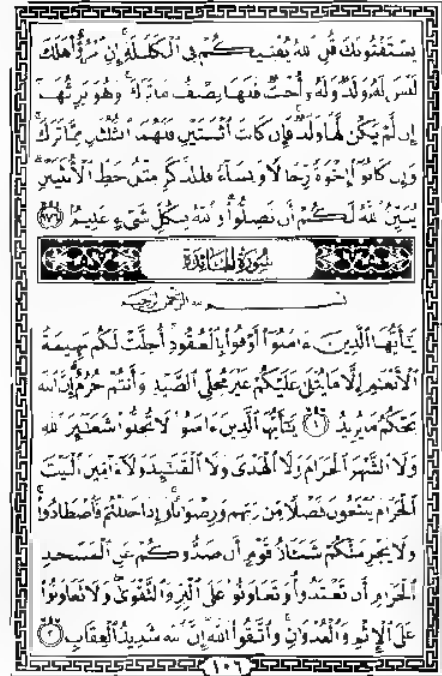 يَسْتَفْتُونَكَ قُلِ ٱللَّهُ يُفْتِيكُمْ فِى ٱلْكَلَٰلَةِ إِنِ ٱمْرُؤٌا۟ هَلَكَ
لَيْسَ لَهُۥ وَلَدٌ وَلَهُۥٓ أُخْتٌ فَلَهَا نِصْفُ مَا تَرَكَ وَهُوَ يَرِثُهَآ
إِن لَّمْ يَكُن لَّهَا وَلَدٌ فَإِن كَانَتَا ٱثْنَتَيْنِ فَلَهُمَا ٱلثُّلُثَانِ مِمَّا تَرَكَ
وَإِن كَانُوٓا۟ إِخْوَةً رِّجَالًا وَنِسَآءً فَلِلذَّكَرِ مِثْلُ حَظِّ ٱلْأُنثَيَيْنِ
يُبَيِّنُ ٱللَّهُ لَكُمْ أَن تَضِلُّوا۟ وَٱللَّهُ بِكُلِّ شَىْءٍ عَلِيمٌۢ ١٧٦
سُورَةُ المَائِدَةِ
بِسْمِ ٱللَّهِ ٱلرَّحْمَٰنِ ٱلرَّحِيمِ
يَٰٓأَيُّهَا ٱلَّذِينَ ءَامَنُوٓا۟ أَوْفُوا۟ بِٱلْعُقُودِ أُحِلَّتْ لَكُم بَهِيمَةُ
ٱلْأَنْعَٰمِ إِلَّا مَا يُتْلَىٰ عَلَيْكُمْ غَيْرَ مُحِلِّى ٱلصَّيْدِ وَأَنتُمْ حُرُمٌ إِنَّ ٱللَّهَ
يَحْكُمُ مَا يُرِيدُ ١ يَٰٓأَيُّهَا ٱلَّذِينَ ءَامَنُوا۟ لَا تُحِلُّوا۟ شَعَٰٓئِرَ ٱللَّهِ
وَلَا ٱلشَّهْرَ ٱلْحَرَامَ وَلَا ٱلْهَدْىَ وَلَا ٱلْقَلَٰٓئِدَ وَلَآ ءَآمِّينَ ٱلْبَيْتَ
ٱلْحَرَامَ يَبْتَغُونَ فَضْلًا مِّن رَّبِّهِمْ وَرِضْوَٰنًا وَإِذَا حَلَلْتُمْ فَٱصْطَادُوا۟
وَلَا يَجْرِمَنَّكُمْ شَنَـَٔانُ قَوْمٍ أَن صَدُّوكُمْ عَنِ ٱلْمَسْجِدِ
ٱلْحَرَامِ أَن تَعْتَدُوا۟ وَتَعَاوَنُوا۟ عَلَى ٱلْبِرِّ وَٱلتَّقْوَىٰ وَلَا تَعَاوَنُوا۟
عَلَى ٱلْإِثْمِ وَٱلْعُدْوَٰنِ وَٱتَّقُوا۟ ٱللَّهَ إِنَّ ٱللَّهَ شَدِيدُ ٱلْعِقَابِ ٢
١٠٦